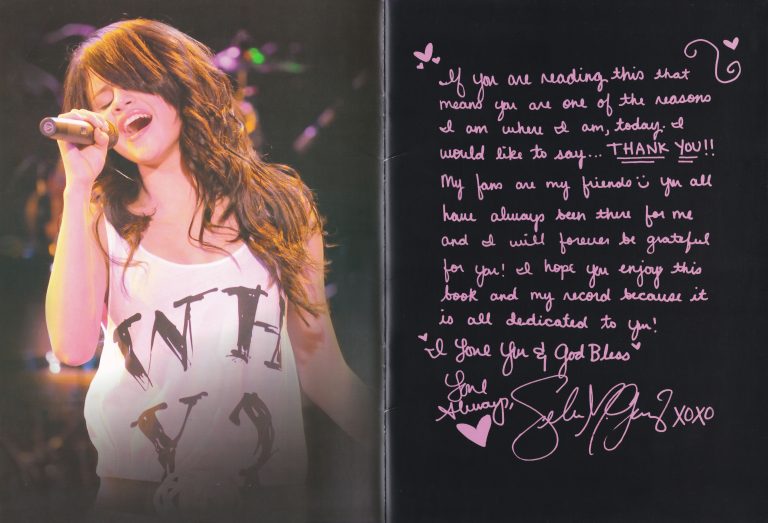 WH
Y?
If you are reading this that
means you are one of the reasons
I am where I am, today. I
would like to say... THANK YOU!!
My fans are my friends :) you all
have always been there for me
and I will forever be grateful
for you! I hope you enjoy this
book and my record because it
is all dedicated to you!
I Love You & God Bless
Love
Always, XOXO